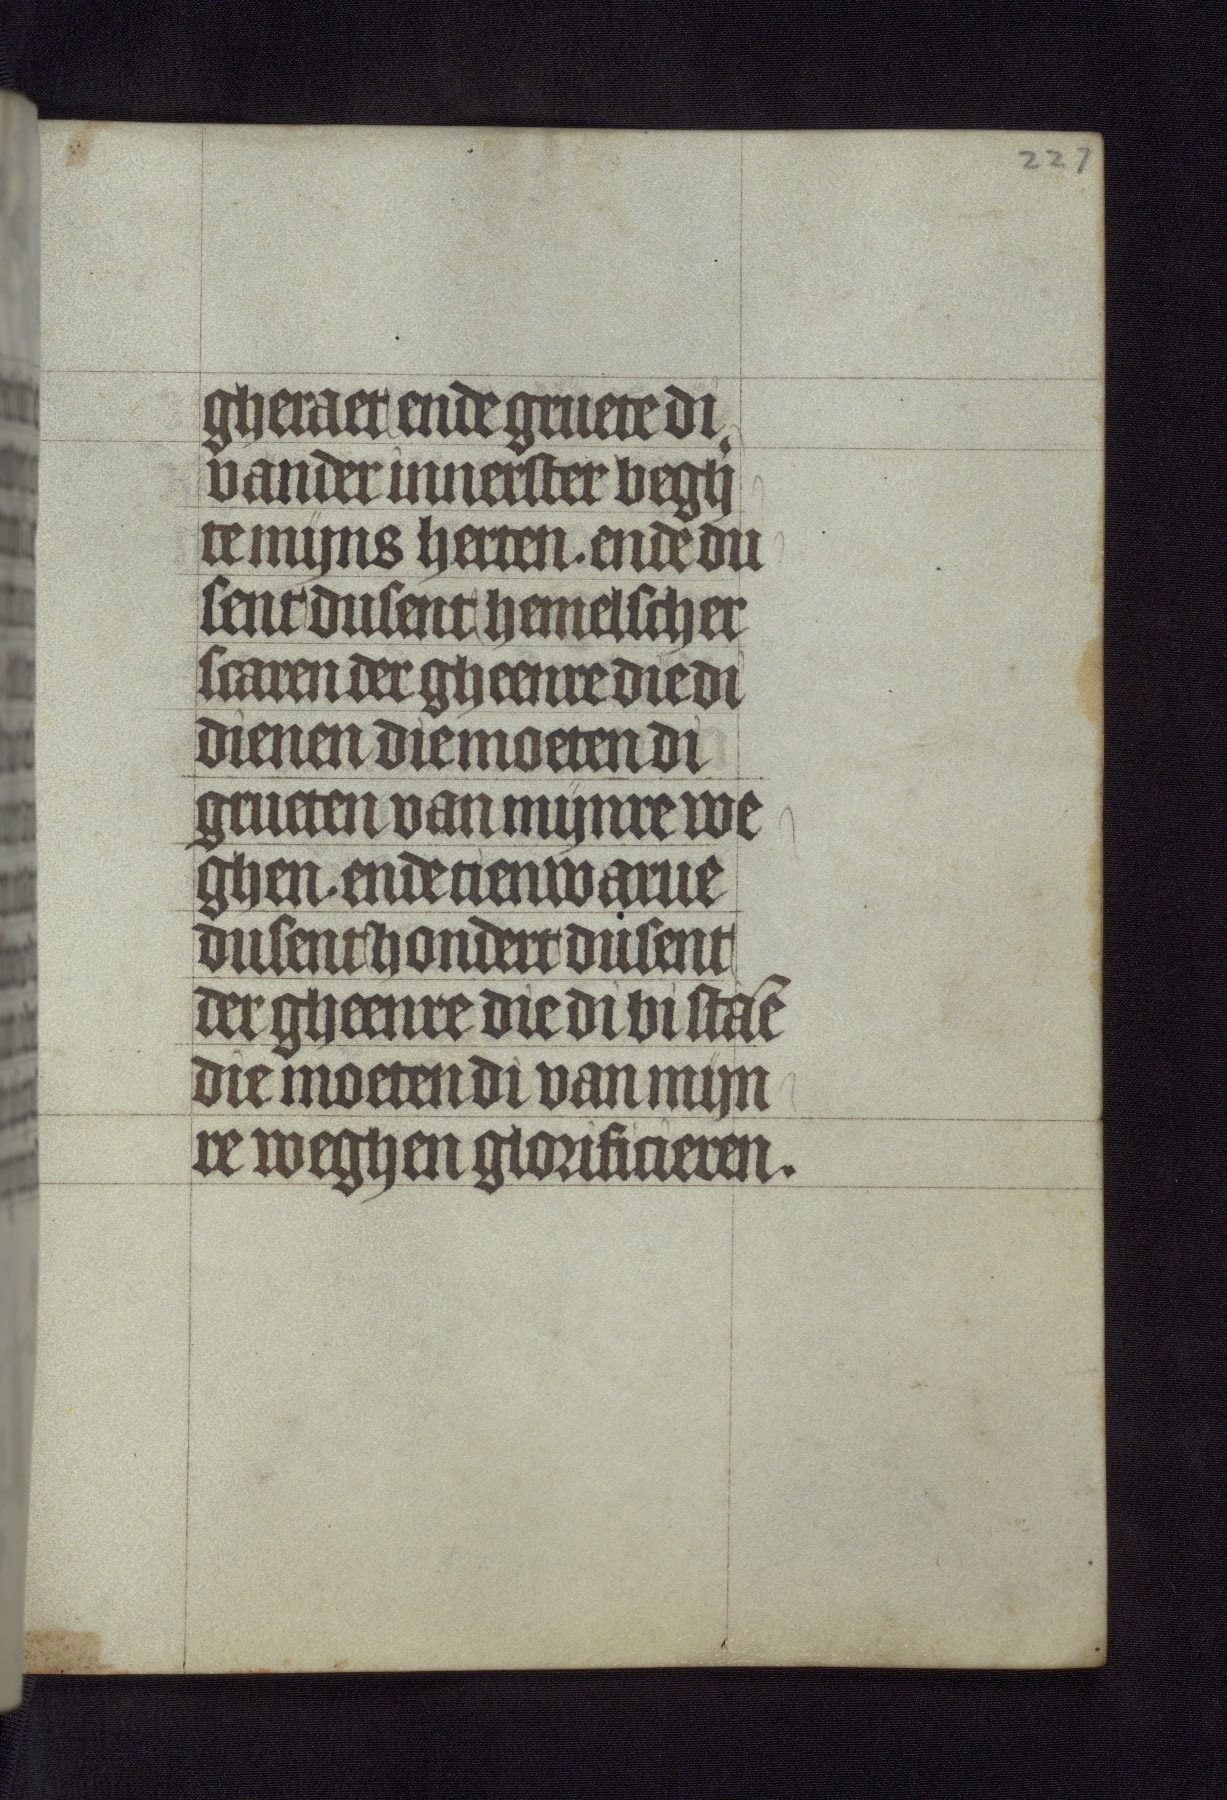 227
gheraet ende gruete di
vander innerster begh
te mijns herten. ende du
sent dusent hemelscher
scaren der gheenre die di
dienen die moeten di
grueten van mijnre we
ghen. ende tienwarue
dusent hondert dusent
der gheenre die di bi staē
die moeten di van mijn
re weghen glorificieren.